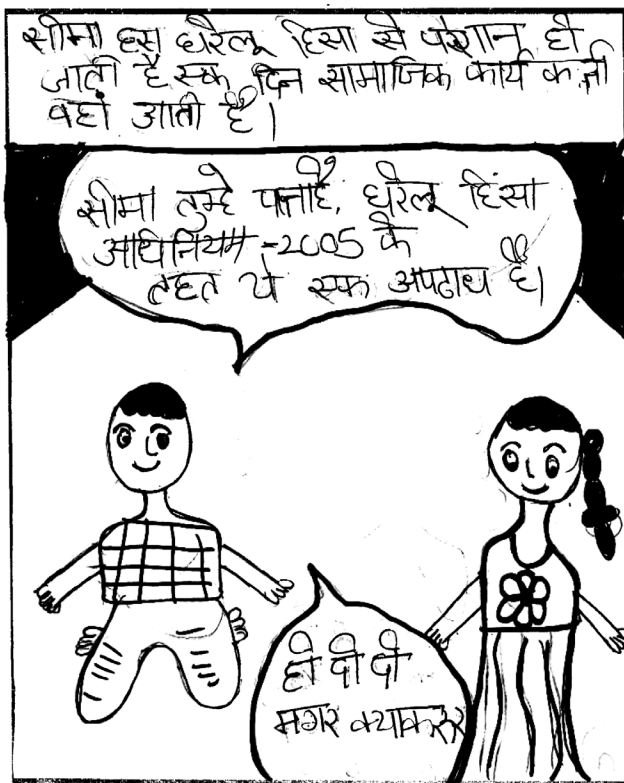 सीमा इस घरेलू हिंसा से परेशान हो
जाती है एक दिन सामाजिक कार्य कर्ता
वहां आती है।
सीमा तुम्हे पत्ताहै, घरेलू हिंसा
अधिनियम -2005 के
तहत ये एक अपराध है।
हाँ दी दी
मगर क्याकरूं